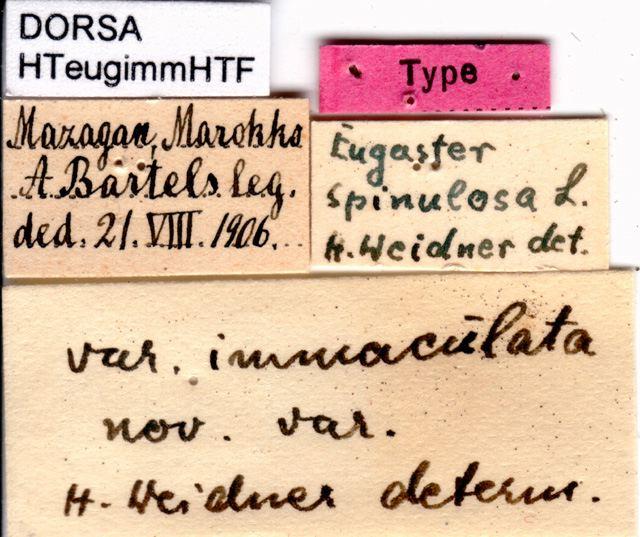 DORSA
HTeugimmHTF
Type
Mazagan, Marokko
A. Bartels leg.
ded. 21. VIII. 1906.
Eugaster
spinulosa L.
H. Weidner det.
var. immaculata
nov. var.
H. Weidner determ.